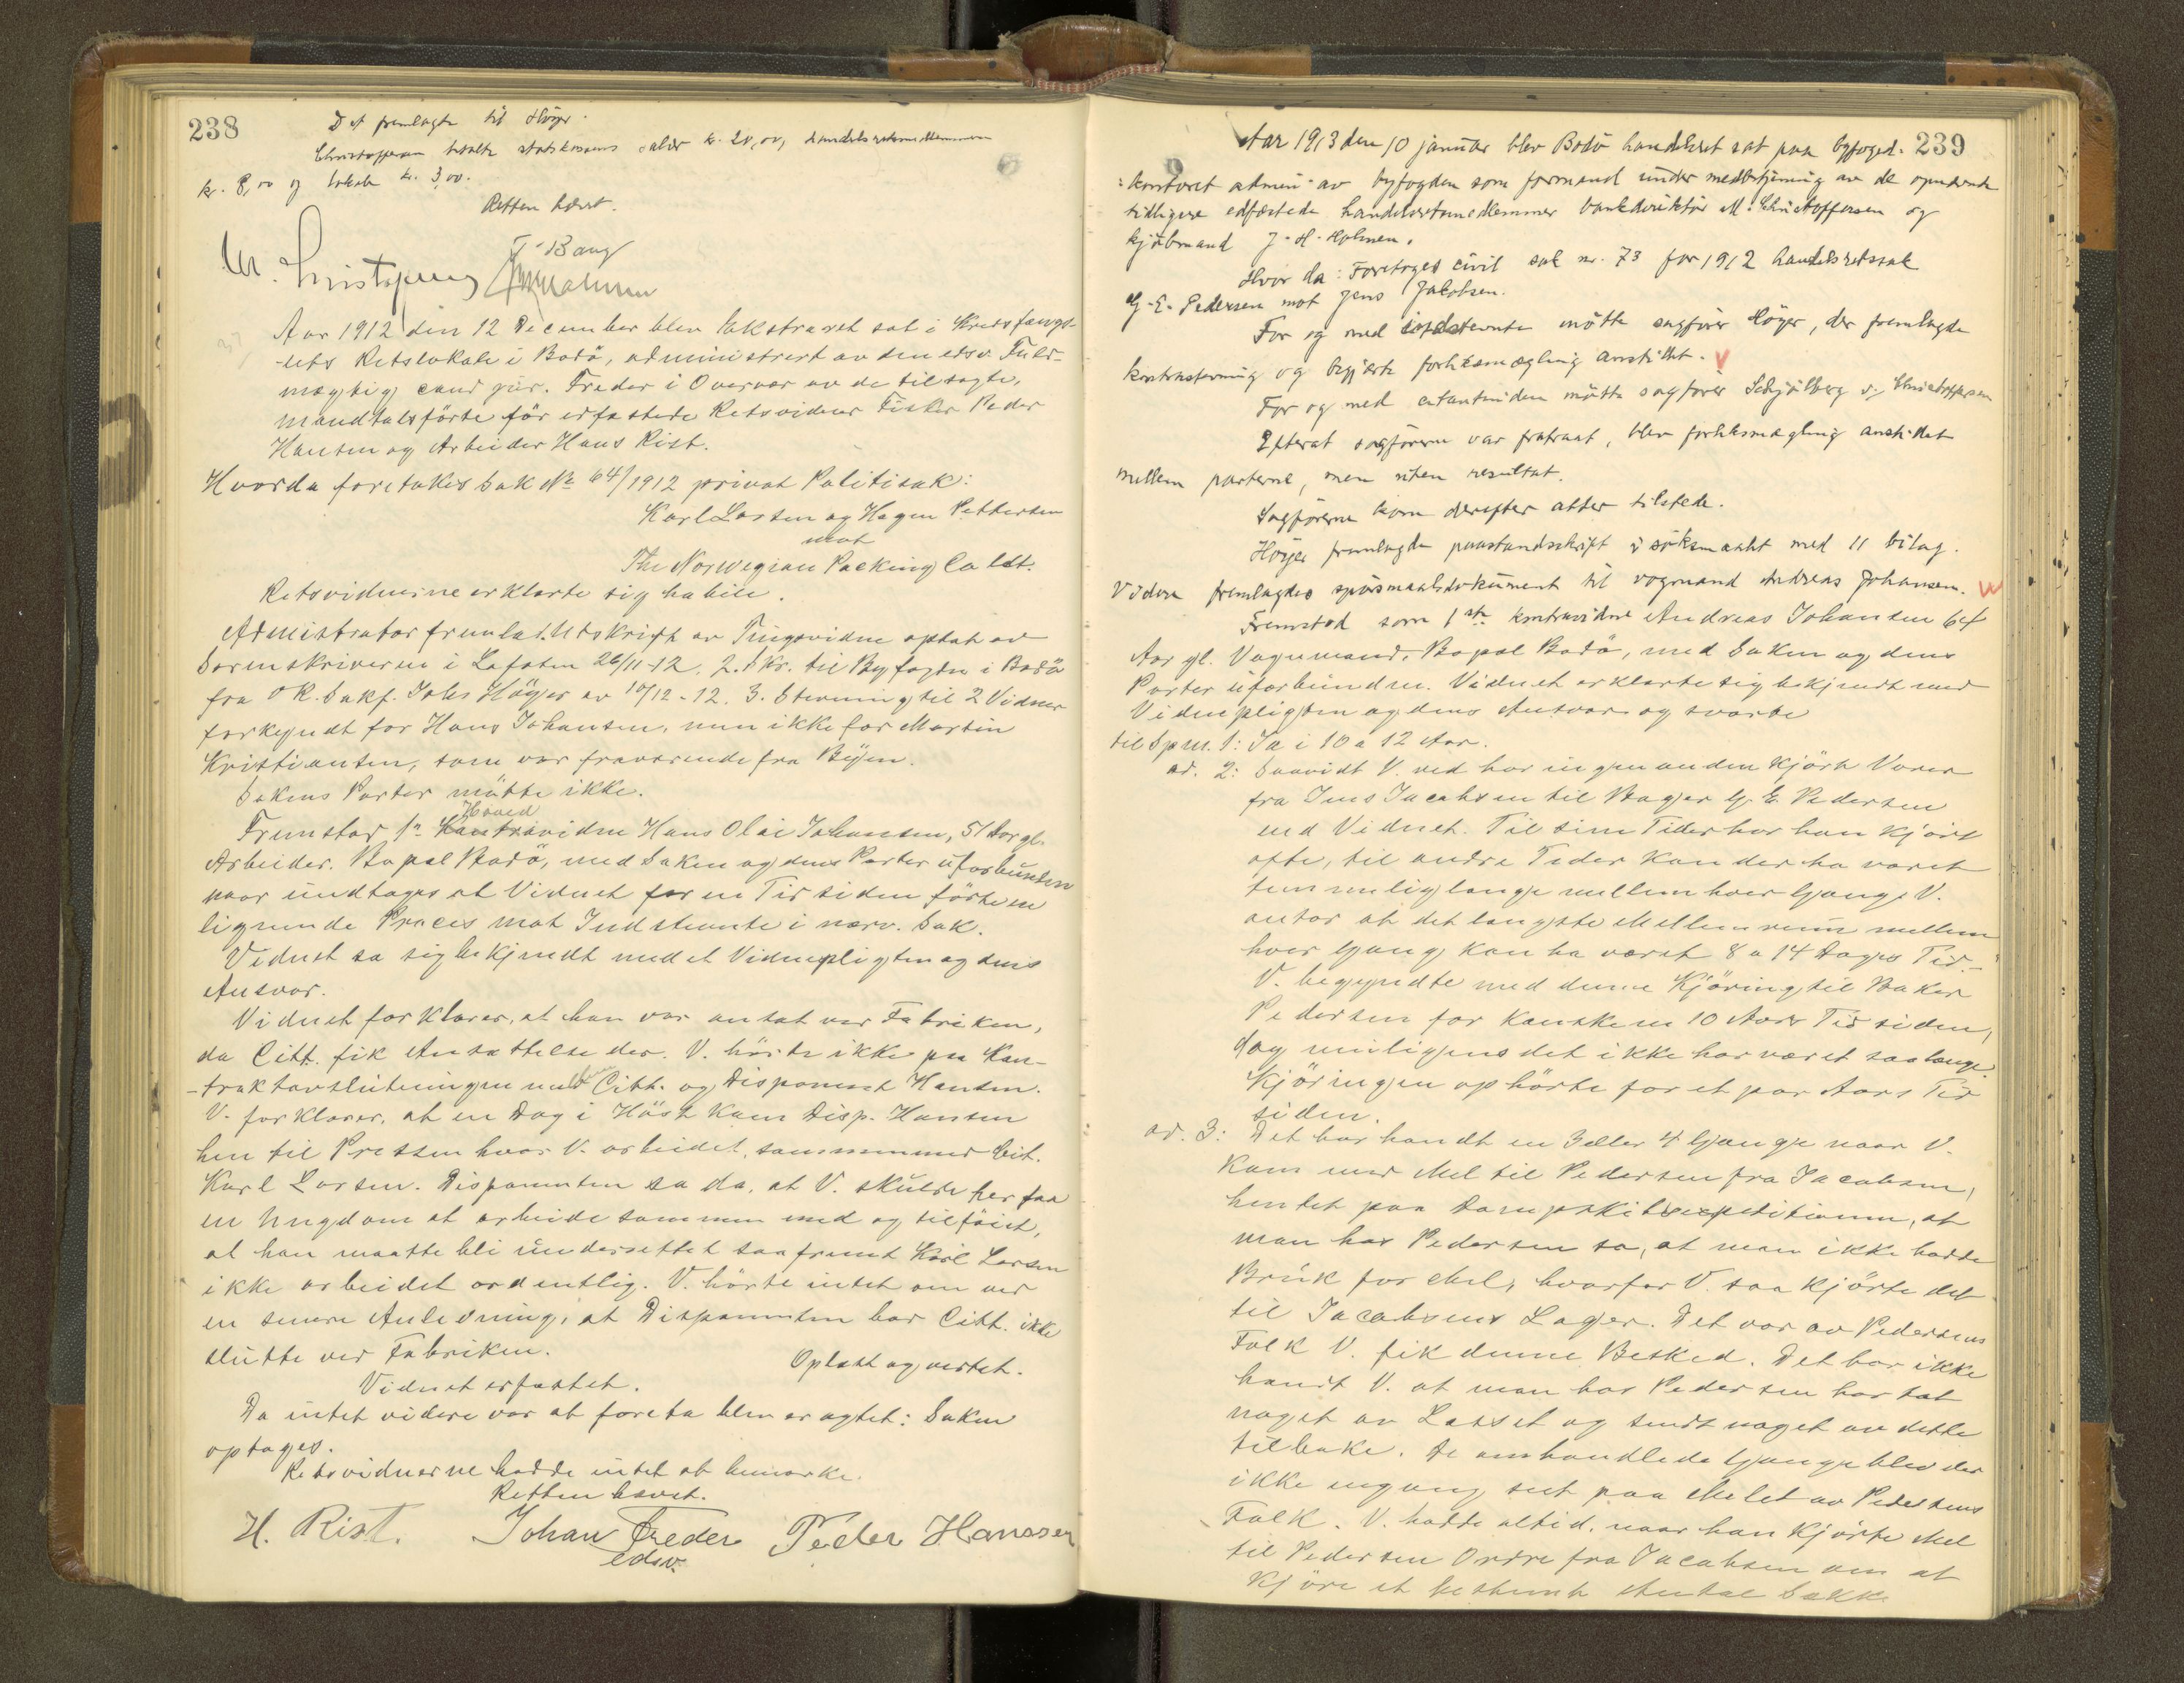 238
Det fremlagte til Høyer.
Christoffersen betalte statskassens salær kr. 20,00, handelsretsmedlemmen
kr. 8,00 og lokale kr. 3,00.
Retten hævet.
T. Bang
M. Christophersen
Aar 1912 den 12 December blev Ekstraret sat i Kredsfængs-
lets Retslokale i Bodö, administrert av den edsv. Fuld-
mægtig cand jur. Freder i Overvær av de tilsagte,
mandtalsförte för edfæstede Retsvidner Fisker Peder
Hansen og Arbeider Hans Rist.
Hvorda foretokes Sak No 64/1912 privat Politisak:
Karl Larsen og Hagen Pettersen
mot
The Norwegian Packing Co Ldt.
Retsvidnerne erklærte sig habile.
Administrator fremla 1. Utskrift av Tingsvidne optat av
Sorenskriveren i Lofoten 26/11-12. 2. Skr. til Byfogden i Bodö
fra OR. Sakf. Johs Höyer av 10/12-12. 3. Stevning til 2 Vidner
forkyndt for Hans Johansen, men ikke for Martin
Kristiansen, som var fraværende fra Byen.
Sakens Parter mötte ikke.
Fremstod 1ste Hoved Kontravidne Hans Olai Johansen, 51 Aar gl.
Arbeider. Bopæl Bodö, med Saken og dens Parter uforbunden
naar undtages at Vidnet for en Tid siden förte en
lignende Proces mot Indstevnte i nærv. Sak.
Vidnet sa sig bekjendt med et Vidnepligten og dens
Ansvar.
Vidnet forklarer, at han var ansat ved Fabriken,
da Citt. fik Ansættelse der. V. hörte ikke paa Kon-
-traktavslutningen mellem Citt. og Disponent Hansen.
V. forklarer, at en Dag i Höst kom Disp. Hansen
hen til Pressen hvor V. arbeidet, sammen med Cit.
Karl Larsen. Disponenten sa da, at V. skulde her faa
en Ungdom at arbeide sammen med og tilföiet,
at han maatte bli underrettet saafremt Karl Larsen
ikke arbeidet ordentlig. V. hörte intet om ved
en senere Anledning, at Disponenten bad Citt. ikke
slutte ved Fabriken.
Oplæst og vedtat.
Vidnet edfæstet.
Da intet videre var at foreta blev eragtet: Saken
optages.
Retsvidnerne hadde intet at bemærke.
Retten hævet.
H. Rist. Johan Freder Peder Hanssen
edsv.
239
Aar 1913 den 10 januar blev Bodö handelsret sat paa byfoged-
kontoret admin. av byfogden som formand under medbetjening av de opnævnte
tidligere edfæstede handelsretsmedlemmer bankdirektör M. Christoffersen og
kjöbmand J. H. Holmen.
Hvor da: Foretoges civil sak nr. 73 for 1912 handelsretssak
G. E. Pedersen mot Jens Jakobsen.
For og med indstevnte mötte sagförer Höyer, der fremlagde
kontrastevning og begjærte forliksmægling anstillet. V
For og med citantsiden mötte sagförer Schjölberg v. Christoffersen
Efterat sagförerne var fratraat, blev forliksmægling anstillet
mellem parterne, men uten resultat.
Sagförerne kom derefter atter tilstede.
Höyer fremlagde paastandsskrift i söksmaalet med 11 bilag.
Videre fremlagdes spörsmaalsdokument til vognmand Andreas Johansen. W
Fremstod som 1ste kontravidne Andreas Johansen 64
Aar gl. Vognmand, Bopæl Bodö, med Saken og dens
Parter uforbunden. Vidnet erklærte sig bekjendt med
Vidnepligten og dens Ansvar og svarte
til Spm. 1: Ja i 10 a 12 Aar.
ad. 2: Saavidt V. ved har ingen anden kjört Varer
fra Jens Jacobsen til Bager G. E. Pedersen
end Vidnet. Til sine Tider har han kjört
ofte, til andre Tider kan der ha været
temmelig længe mellem hver Gang. V.
antar at det længste Mellemrum mellem
hver Gang kan ha været 8 a 14 Dages Tid.
V. begyndte med denne Kjöring til Baker
Pedersen for kanske en 10 Aars Tid siden,
dog muligens det ikke har været saa længe.
Kjöringen ophörte for et par Aars Tid
siden.
ad. 3: Det har hændt en 3 eller 4 Gange naar V.
kom med Mel til Pedersen fra Jacobsen,
hentet paa Dampskibsexpeditionen, at
man hos Pedersen sa, at man ikke hadde
Bruk for Mel, hvorfor V. saa kjörte det
til Jacobsens Lager. Det var av Pedersens
Folk V. fik denne Besked. Det har ikke
hændt V. at man hos Pedersen har tat
noget av Lasset og sendt noget av dette
tilbake. De omhandlede Gange blev der
ikke engang set paa Melet av Pedersens
Folk. V. hadde altid, naar han kjörte Mel
til Pedersen Ordre fra Jacobsen om at
kjöre et bestemt Antal Sække